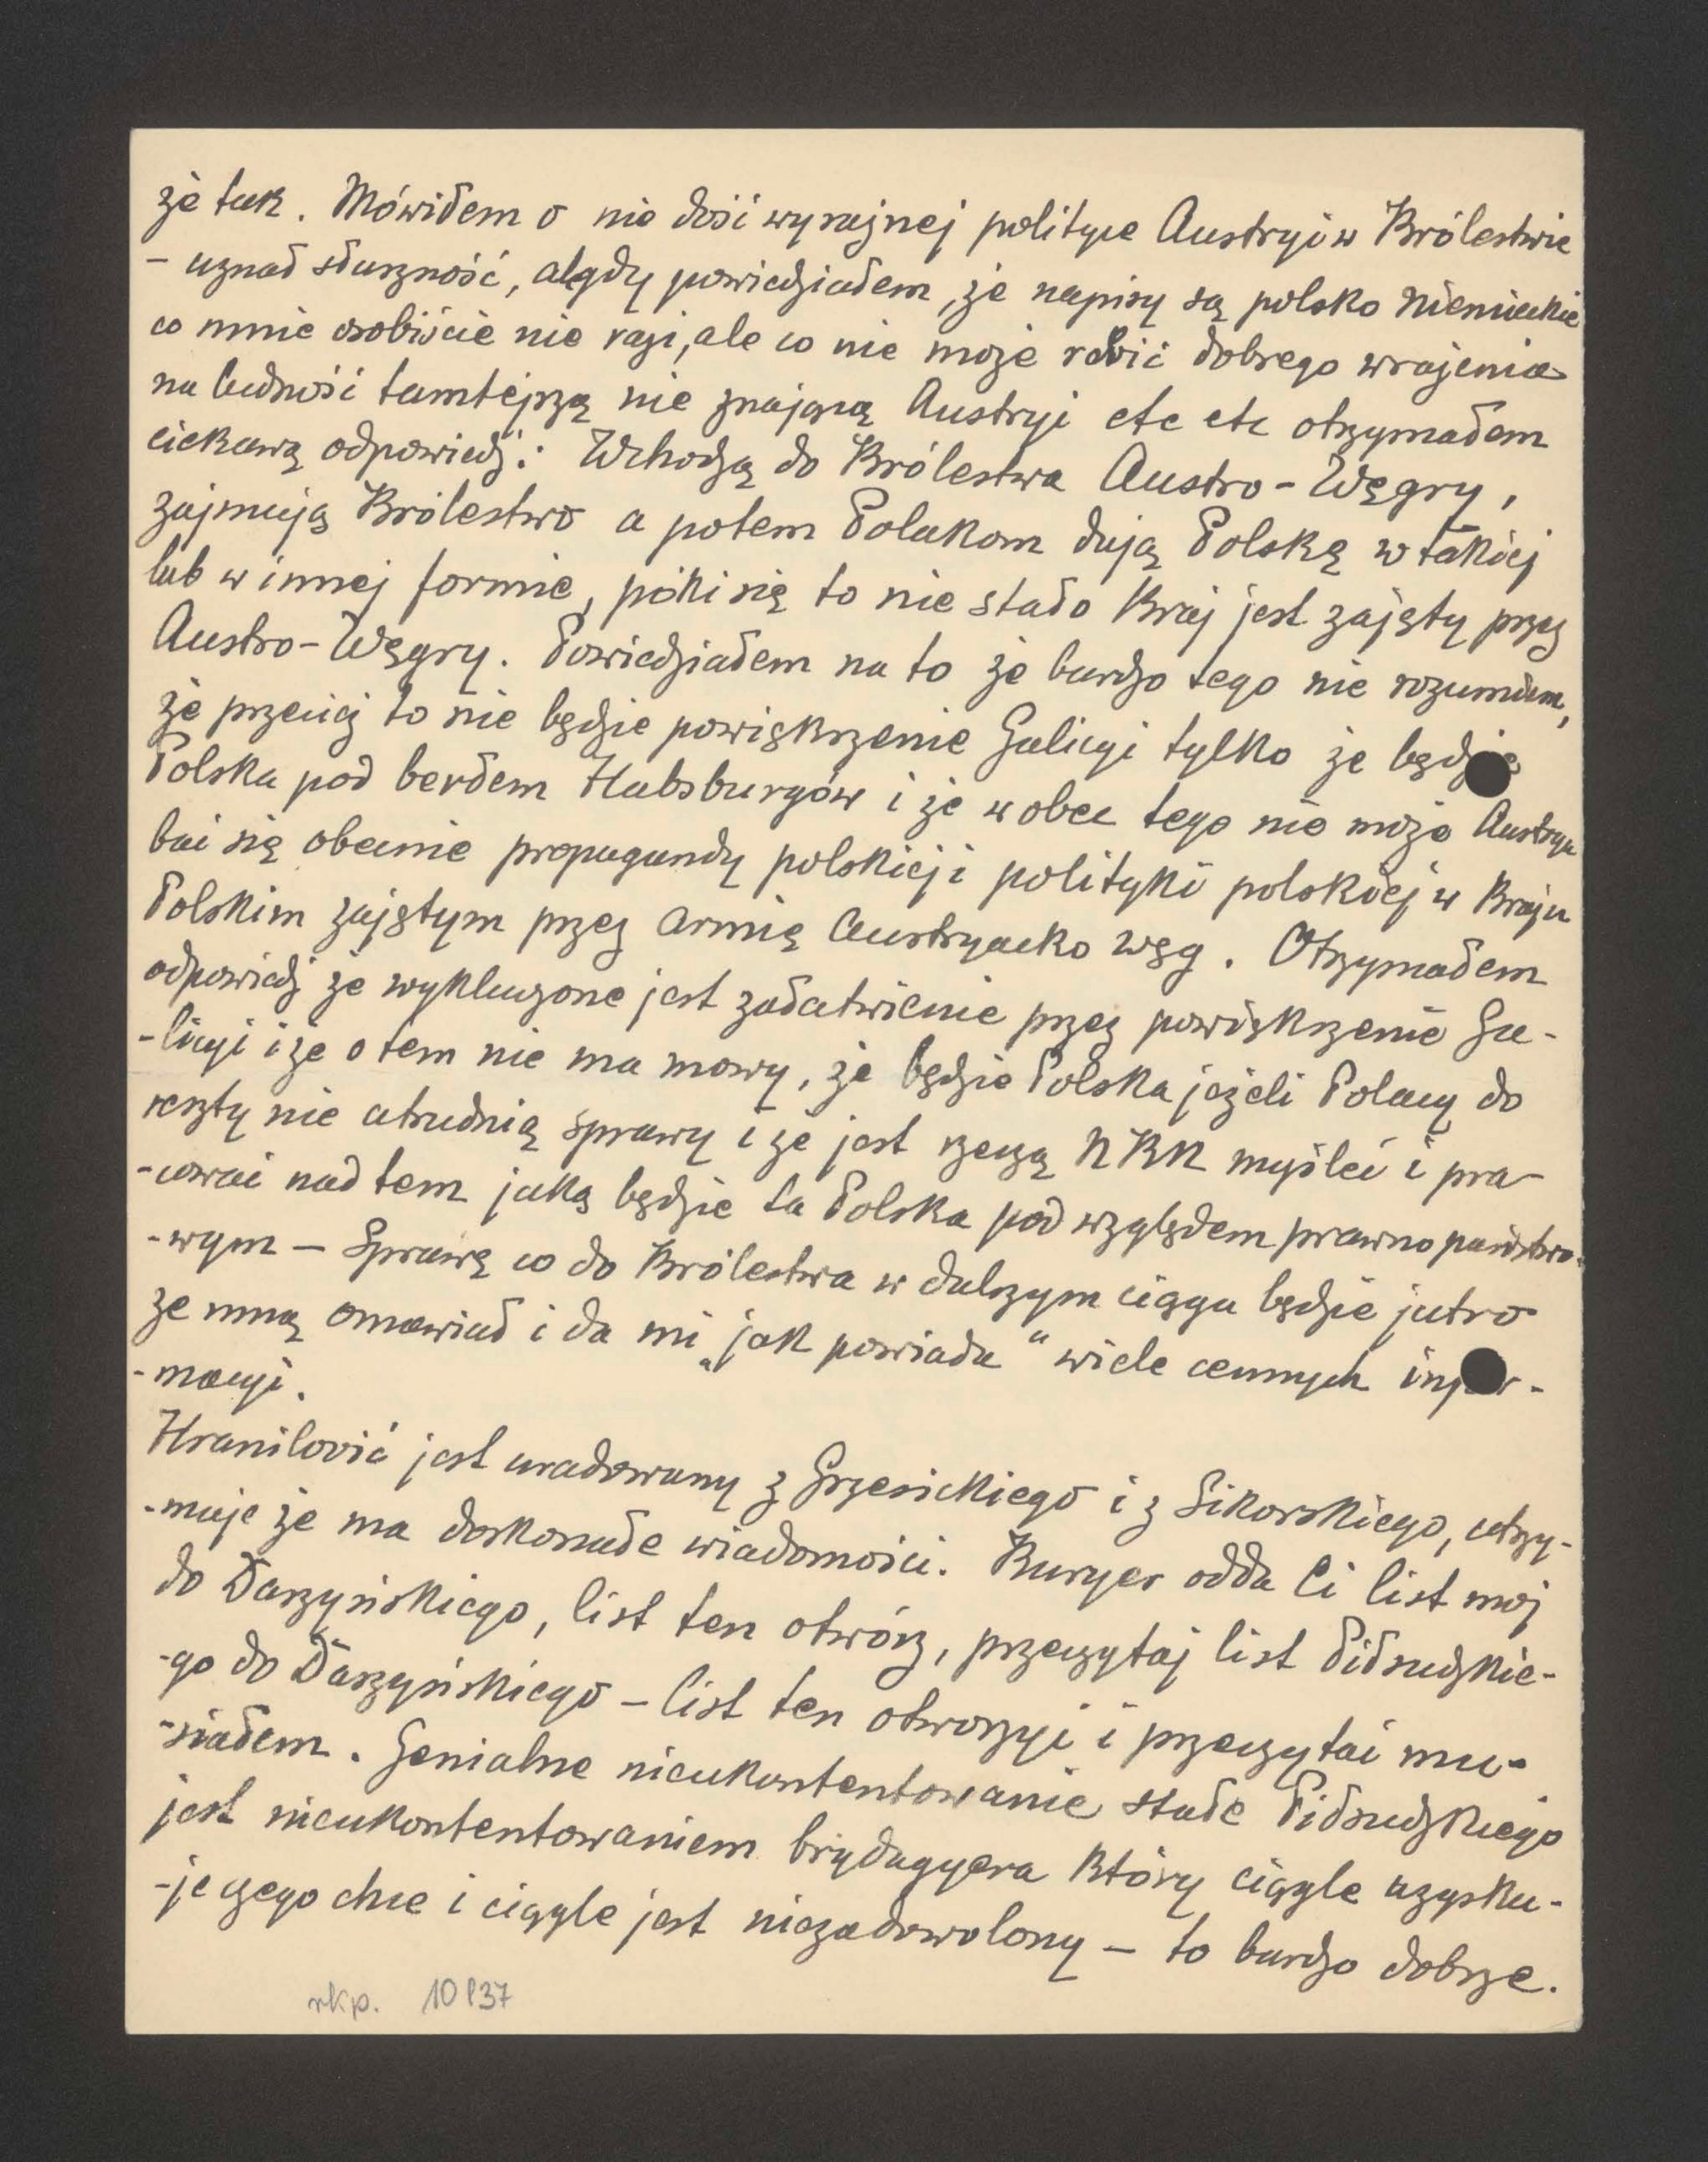 że tak. Mówiłem o nie dość wyraźnej polityce Austryi w Królestwie
- uznał słuszność, a gdy powiedziałem, że napisy są polsko niemieckie
co mnie osobiście nie razi, ale co nie może robić dobrego wrażenia
na ludność tamtejszą nie znającą Austryi etc etc otrzymałem
ciekawą odpowiedź: Wchodzą do Królestwa Austro-Węgry,
zajmują Królestwo a potem Polakom dają Polskę w takiej
lub w innej formie, póki się to nie stało kraj jest zajęty przez
Austro-Węgry. Powiedziałem na to że bardzo tego nie rozumiem,
że przecież to nie będzie powiększenie Galicyi tylko że będzie
Polska pod berłem Habsburgów i że wobec tego nie może Austrya
bać się obecnie propagandy polskiej i polityki polskiej w kraju
Polskim zajętym przez armię austryacko węg. Otrzymałem
odpowiedź że wykluczone jest załatwienie przez powiększenie Ga-
-licyi i że o tem nie ma mowy, że będzie Polska jeżeli Polacy do
reszty nie utrudnią sprawy i że jest rzeczą NKN myśleć i pra-
-cować nad tem jaką będzie ta Polska pod względem prawno państwo-
-wym - Sprawę co do Królestwa w dalszym ciągu będzie jutro
ze mną omawiał i da mi „jak powiada“ wiele cennych infor-
-macyi.
Hranilović jest uradowany z Grzesickiego i z Sikorskiego, utrzy-
-muje że ma doskonałe wiadomości. Kuryer odda Ci list mój
do Daszyńskiego, list ten otwórz, przeczytaj list Piłsudzkie-
-go do Daszyńskiego - list ten otworzyć i przeczytać mu-
-siałem. Genialne nieukontentowanie stałe Piłsudzkiego
jest nieukontentowaniem brygadyera który ciągle uzysku-
-je czego chce i ciągle jest niezadowolony - to bardzo dobrze.
rkp. 10837